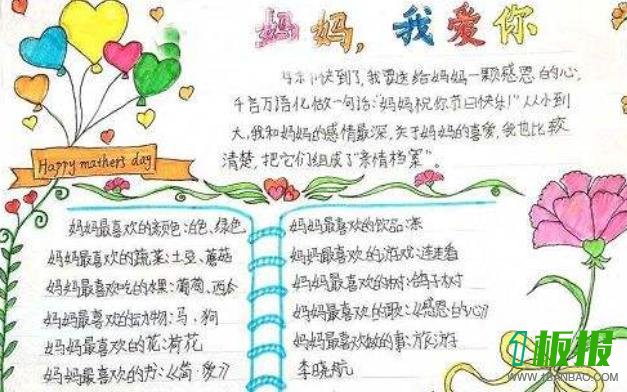 妈妈,我爱你
快到了,我要送给妈妈一颗感恩的心,
千言万语化做一句话:“妈妈祝你节日快乐!”从小到
大,我和妈妈的感情最深,关于妈妈的喜爱,我也比较
清楚,把它们组成了“亲情档案”。
Happy mathers day
妈妈最喜欢的颜色:白色、绿色
妈妈最喜欢的蔬菜:土豆、蘑菇
妈妈最喜欢吃的水果:葡萄、西瓜
妈妈最喜欢的动物:马、狗
妈妈最喜欢的花:荷花
妈妈最喜欢的书:《简·爱》
妈妈最喜欢的饮品:茶
妈妈最喜欢的游戏:连连看
妈妈最喜欢的树:鸽子树
妈妈最喜欢的歌:《感恩的心》
妈妈最喜欢做的事:旅游
李晓航
板报
WWW.1BANBAO.COM